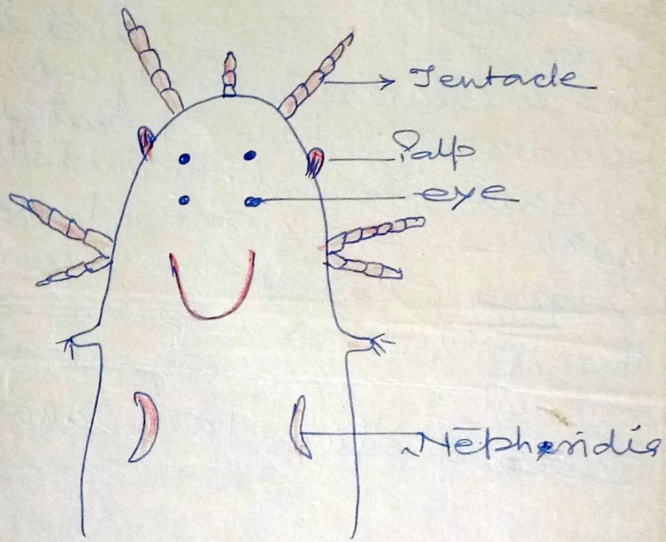 Tentacle
Palp
eye
Nephridia